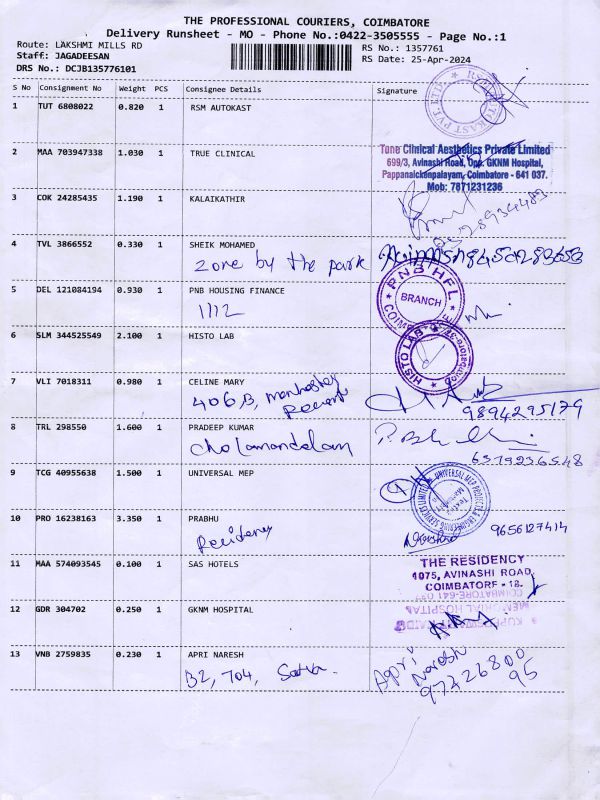 THE PROFESSIONAL COURIERS, COIMBATORE
Delivery Runsheet - MO - Phone No.:0422-3505555 - Page No.:1
Route: LAKSHMI MILLS RD
Staff: JAGADEESAN
DRS No.: DCJB135776101
RS No.: 1357761
RS Date: 25-Apr-2024
S No Consignment No Weight PCS Consignee Details Signature
1 TUT 6808022 0.820 1 RSM AUTOKAST
2 MAA 703947338 1.030 1 TRUE CLINICAL
Tune Clinical Aesthetics Private Limited
699/3, Avinashi Road, Opp. GKNM Hospital,
Pappanaickenpalayam, Coimbatore - 641 037.
Mob: 7871231236
3 COK 24285435 1.190 1 KALAIKATHIR
4 TVL 3866552 0.330 1 SHEIK MOHAMED
zone by the park
5 DEL 121084194 0.930 1 PNB HOUSING FINANCE
1112
PNB HFL
BRANCH
6 SLM 344525549 2.100 1 HISTO LAB
HISTO LAB
7 VLI 7018311 0.980 1 CELINE MARY
406B,
9894295179
8 TRL 298550 1.600 1 PRADEEP KUMAR
cholamandalam
6379236548
9 TCG 40955638 1.500 1 UNIVERSAL MEP
UNIVERSAL MEP PROJECTS & ENGINEERING SERVICES LIMITED
10 PRO 16238163 3.350 1 PRABHU
Residency
9656127414
11 MAA 574093545 0.100 1 SAS HOTELS
THE RESIDENCY
1075, AVINASHI ROAD,
COIMBATORE - 18.
12 GDR 304702 0.250 1 GKNM HOSPITAL
13 VNB 2759835 0.230 1 APRI NARESH
B2, 704,
Apri
Naresh
97726800
95